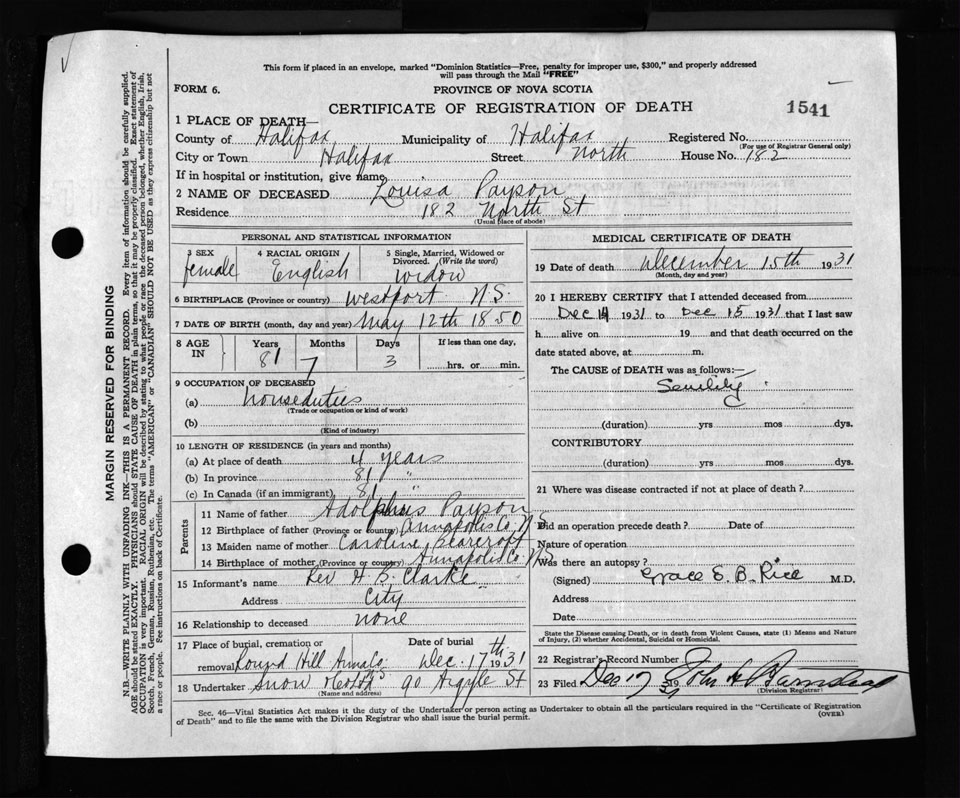 This form if placed in an envelope, marked "Dominion Statistics—Free, penalty for improper use, $300," and properly addressed
will pass through the Mail "FREE"
FORM 6.
PROVINCE OF NOVA SCOTIA
CERTIFICATE OF REGISTRATION OF DEATH
1541
1 PLACE OF DEATH—
County of Halifax Municipality of Halifax Registered No.
(For use of Registrar General only)
City or Town Halifax Street North House No. 182
If in hospital or institution, give name
2 NAME OF DECEASED Louisa Payson
Residence 182 North St
(Usual place of abode)
PERSONAL AND STATISTICAL INFORMATION
3 SEX 4 RACIAL ORIGIN 5 Single, Married, Widowed or
Divorced. (Write the word)
female English widow
6 BIRTHPLACE (Province or country) Westport N.S.
7 DATE OF BIRTH (month, day and year) May 12th 1850
8 AGE IN Years Months Days If less than one day,
81 7 3 hrs. or min.
9 OCCUPATION OF DECEASED
(a) Houseduties
(Trade or occupation or kind of work)
(b)
(Kind of industry)
10 LENGTH OF RESIDENCE (in years and months)
(a) At place of death 4 years
(b) In province 81 "
(c) In Canada (if an immigrant) 81 "
Parents
11 Name of father Adolphus Payson
12 Birthplace of father (Province or country) Annapolis Co. N.S
13 Maiden name of mother Caroline
14 Birthplace of mother (Province or country) Annapolis Co. N.S
15 Informant's name Rev H B. Clarke
Address City
16 Relationship to deceased none
17 Place of burial, cremation or Date of burial
removal Round Hill Dec. 17th 1931
18 Undertaker Snow 90 Argyle St
(Name and address)
MEDICAL CERTIFICATE OF DEATH
19 Date of death December 15th 1931
(Month, day and year)
20 I HEREBY CERTIFY that I attended deceased from
Dec 14 1931 to Dec 15 1931 that I last saw
h alive on 19 and that death occurred on the
date stated above, at m.
The CAUSE of DEATH was as follows:—
Senility
(duration) yrs mos dys.
CONTRIBUTORY
(duration) yrs mos dys.
21 Where was disease contracted if not at place of death?
Did an operation precede death? Date of
Nature of operation
Was there an autopsy?
(Signed) Grace E. B. Rice M.D.
Address
Date
State the Disease causing Death, or in death from Violent Causes, state (1) Means and Nature
of Injury, (2) whether Accidental, Suicidal or Homicidal.
22 Registrar's Record Number
23 Filed Dec 17 1931 John H Barnstead
(Division Registrar)
Sec. 46—Vital Statistics Act makes it the duty of the Undertaker or person acting as Undertaker to obtain all the particulars required in the "Certificate of Registration
of Death" and to file the same with the Division Registrar who shall issue the burial permit.
(OVER)
MARGIN RESERVED FOR BINDING
N.B.—WRITE PLAINLY WITH UNFADING INK—THIS IS A PERMANENT RECORD. Every item of information should be carefully supplied.
AGE should be stated EXACTLY. PHYSICIANS should STATE CAUSE OF DEATH in plain terms, so that it may be properly classified. Exact statement of
OCCUPATION is very important. RACIAL ORIGIN will be described by stating to what people or race the deceased person belonged, whether English, Irish,
Scotch, French, German, Russian, Ruthenian, etc. The terms "AMERICAN" or "CANADIAN" SHOULD NOT BE USED as they express citizenship but not
a race or people. See instructions on back of Certificate.